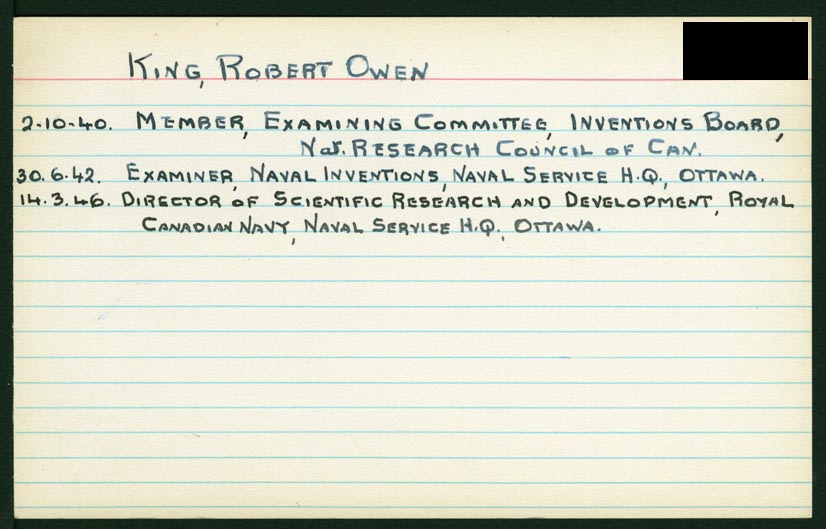 King, Robert Owen
2-10-40. Member, Examining Committee, Inventions Board,
Nat. Research Council of Can.
30.6.42. Examiner, Naval Inventions, Naval Service H.Q., Ottawa.
14.3.46. Director of Scientific Research and Development, Royal
Canadian Navy, Naval Service H.Q., Ottawa.